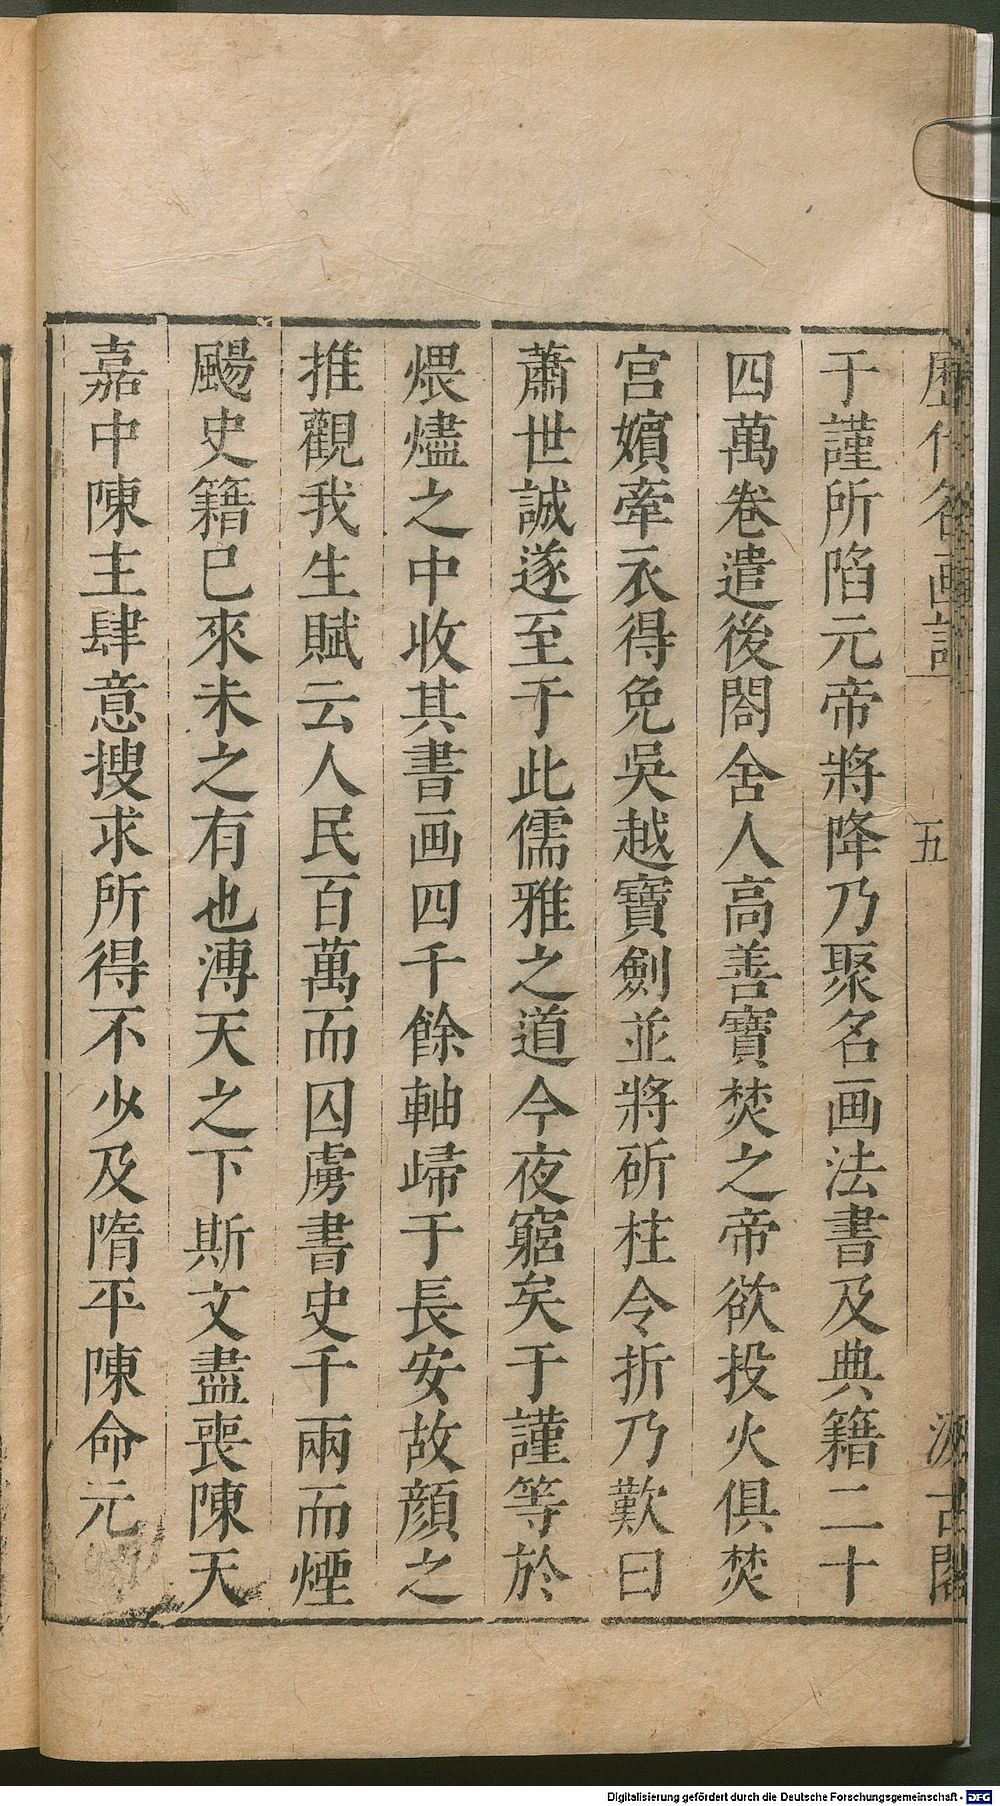 歷代名画記
五
汲古閣
于謹所陷元帝將降乃聚名画法書及典籍二十
四萬卷遣後閤舍人高善寶焚之帝欲投火俱焚
宮嬪牽衣得免吳越寶劍並將斫柱令折乃歎曰
蕭世誠遂至于此儒雅之道今夜窮矣于謹等於
煨燼之中收其書画四千餘軸歸于長安故顏之
推觀我生賦云人民百萬而囚虜書史千兩而煙
颺史籍已來未之有也溥天之下斯文盡喪陳天
嘉中陳主肆意搜求所得不少及隋平陳命元
Digitalisierung gefördert durch die Deutsche Forschungsgemeinschaft - DFG